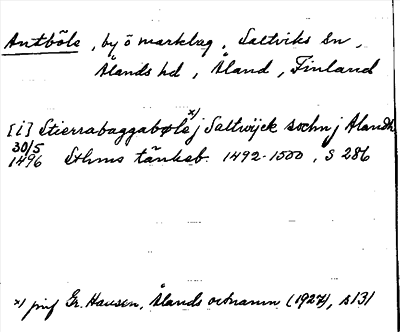 Antböle, by ö markbag, Saltviks sn,
Ålands hd, Åland, Finland
[i] Stierrabaggabøle x) j Saltwijck sochn j Aland
30/5
1496 Sthms tänkeb. 1492-1500, S 286
x) jmf Gr. Hausen, Ålands ortnamn (1927), s 131